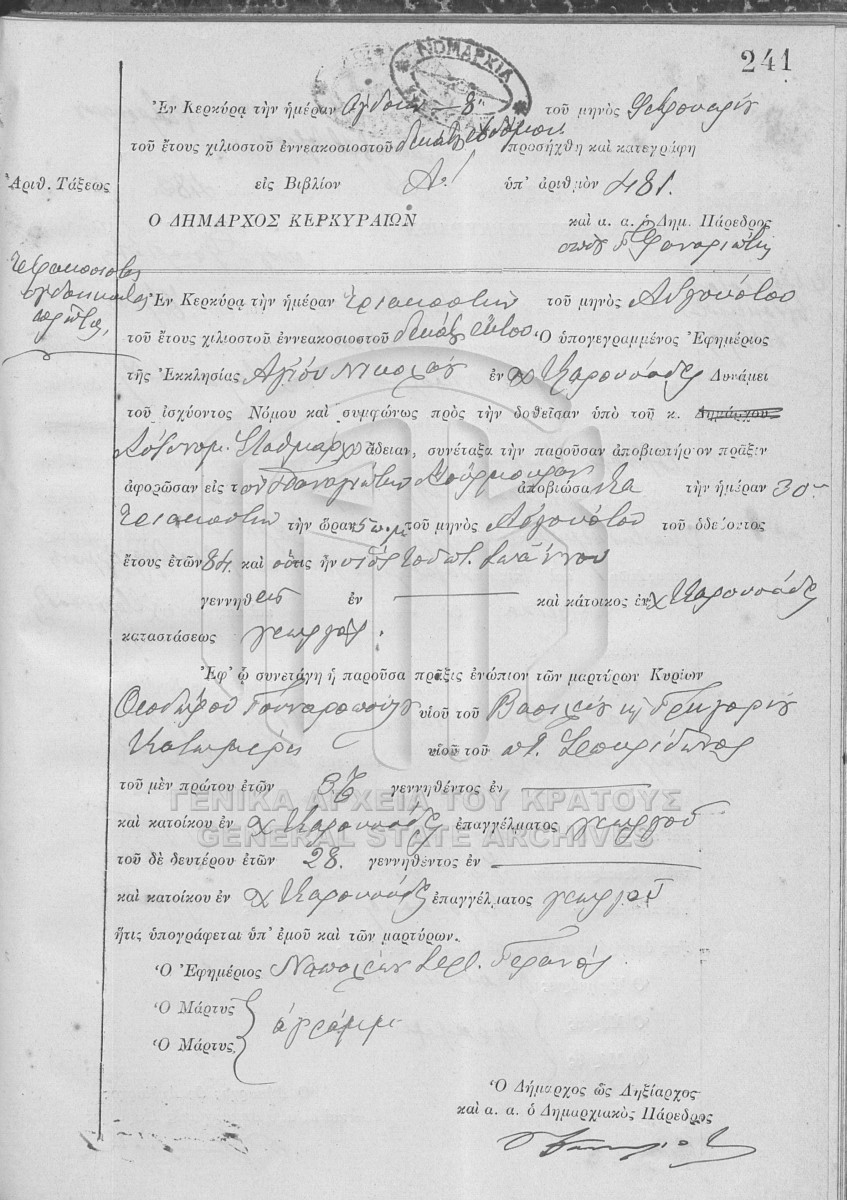 241
ΝΟΜΑΡΧΙΑ
Ἐν Κερκύρᾳ τὴν ἡμέραν ὀγδόην 8ην τοῦ μηνὸς Φεβρουαρίου
τοῦ ἔτους χιλιοστοῦ ἐννεακοσιοστοῦ δεκάτου ἑβδόμου προσήχθη καὶ κατεγράφη
Ἀριθ. Τάξεως
εἰς Βιβλίον Α! ὑπ' ἀριθμὸν 481.
Ο ΔΗΜΑΡΧΟΣ ΚΕΡΚΥΡΑΙΩΝ
καὶ α. α. ὁ Δημ. Πάρεδρος
τετρακοσιοστὸς
ὀγδοηκοστὸς
πρῶτος
Ἐν Κερκύρᾳ τὴν ἡμέραν τριακοστὴν τοῦ μηνὸς Αὐγούστου
τοῦ ἔτους χιλιοστοῦ ἐννεακοσιοστοῦ δεκάτου ἕκτου Ὁ ὑπογεγραμμένος Ἐφημέριος
τῆς Ἐκκλησίας Ἁγίου Νικολάου ἐν χ Καρουσάδες Δυνάμει
τοῦ ἰσχύοντος Νόμου καὶ συμφώνως πρὸς τὴν δοθεῖσαν ὑπὸ τοῦ κ. Δημάρχου
Ἀστυνομ. Σταθμάρχου ἄδειαν, συνέταξα τὴν παροῦσαν ἀποβιωτήριον πρᾶξιν
ἀφορῶσαν εἰς τὸν Παναγιώτην ἀποβιώσαντα τὴν ἡμέραν 30ην
τριακοστὴν τὴν ὥραν 5 π.μ τοῦ μηνὸς Αὐγούστου τοῦ ὁδεύοντος
ἔτους ἐτῶν 84. καὶ ὅστις ἦν υἱὸς τοῦ ποτ. Ἰωάννου
γεννηθεὶς ἐν καὶ κάτοικος ἐν χ Καρουσάδες
καταστάσεως γεωργός.
Ἐφ' ᾧ συνετάγη ἡ παροῦσα πρᾶξις ἐνώπιον τῶν μαρτύρων Κυρίων
Θεοδώρου υἱοῦ τοῦ Βασιλείου κ Γρηγορίου
υἱοῦ τοῦ ποτ. Σπυρίδωνος
τοῦ μὲν πρώτου ἐτῶν γεννηθέντος ἐν
ΓΕΝΙΚΑ ΑΡΧΕΙΑ ΤΟΥ ΚΡΑΤΟΥΣ
καὶ κατοίκου ἐν χ Καρουσάδες ἐπαγγέλματος γεωργοῦ
GENERAL STATE ARCHIVES
τοῦ δὲ δευτέρου ἐτῶν 28. γεννηθέντος ἐν
καὶ κατοίκου ἐν χ Καρουσάδες ἐπαγγέλματος γεωργοῦ
ἥτις ὑπογράφεται ὑπ' ἐμοῦ καὶ τῶν μαρτύρων.
Ὁ Ἐφημέριος
Ὁ Μάρτυς
ἀγράμμ
Ὁ Μάρτυς
Ὁ Δήμαρχος ὡς Ληξίαρχος
καὶ α. α. ὁ Δημαρχιακὸς Πάρεδρος